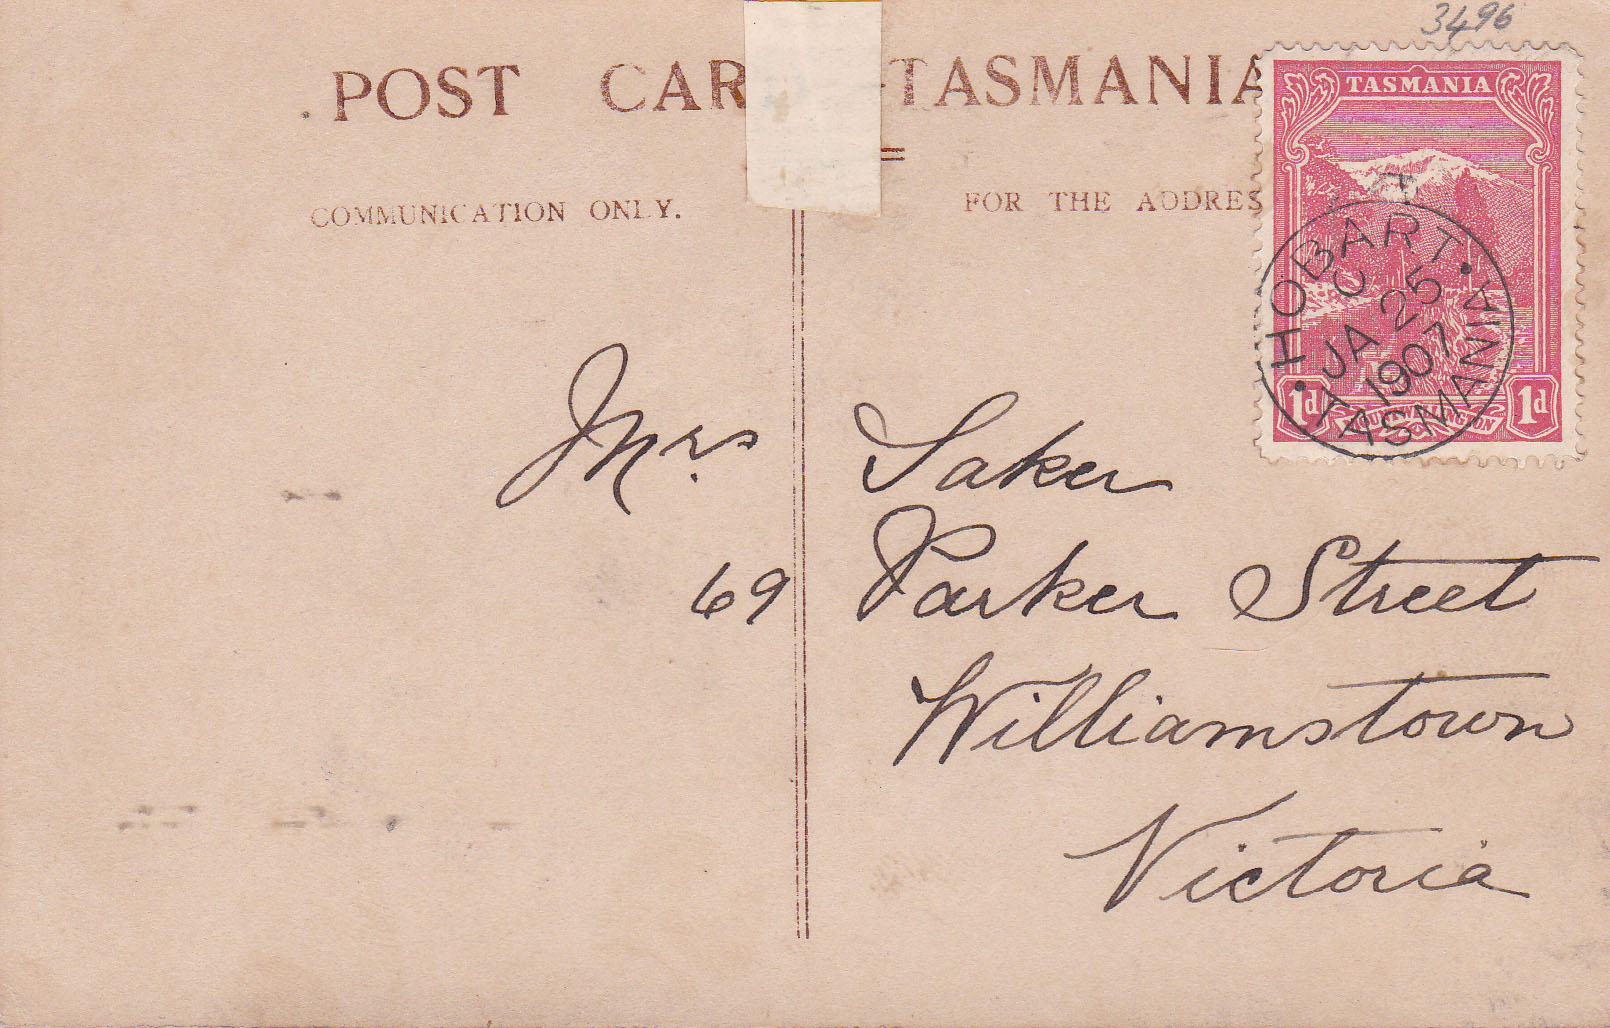 3496
POST CAR TASMANIA
COMMUNICATION ONLY.
FOR THE ADDRES
TASMANIA
HOBART
C
JA 25
1907
TASMANIA
1d 1d
Mrs. Saker
69 Parker Street
Williamstown
Victoria